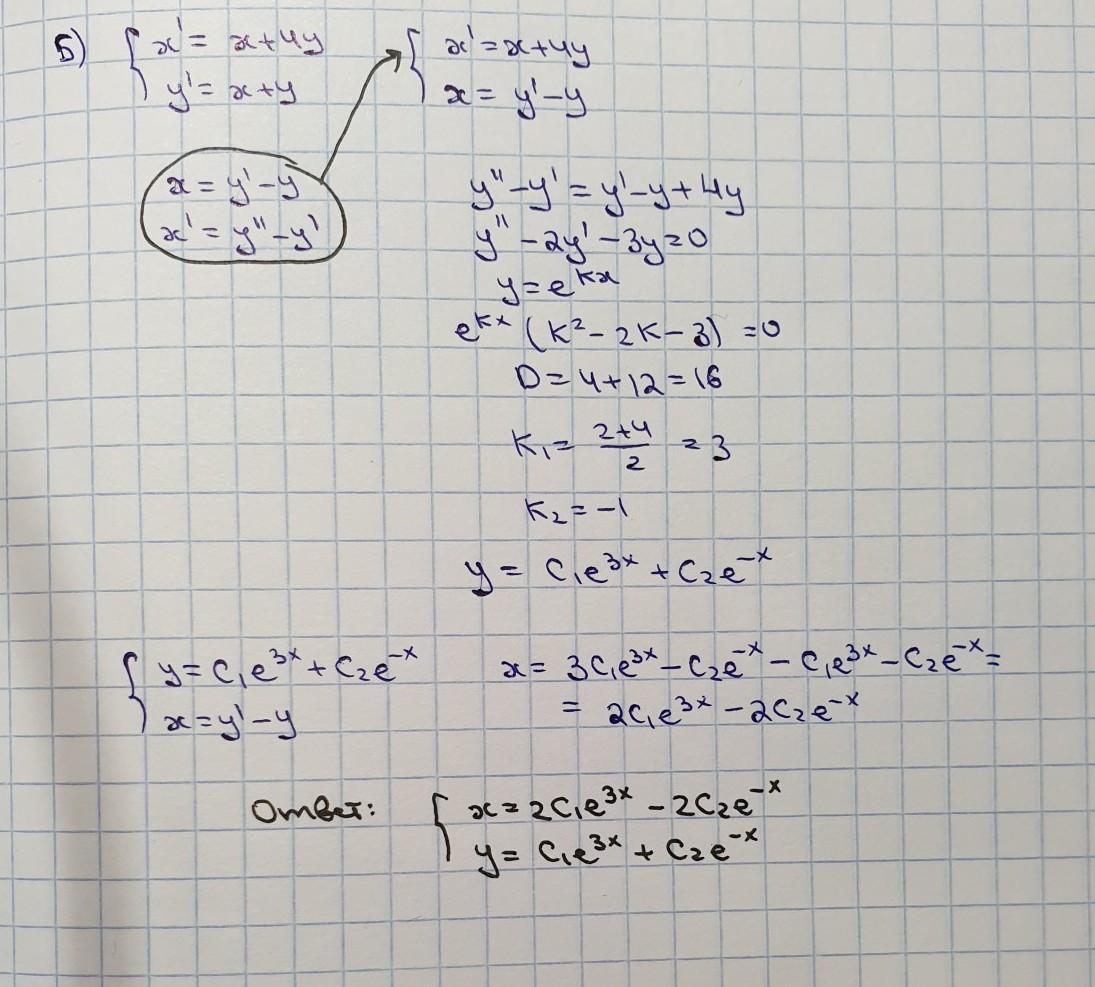 5) { x' = x+4y
y' = x+y
{ x' = x+4y
x = y'-y
x = y'-y
x' = y''-y'
y''-y' = y'-y+4y
y''-2y'-3y=0
y=e^{kx}
e^{kx} (k²-2k-3) =0
D=4+12=16
K₁= \frac{2+4}{2} = 3
K₂=-1
y = C₁e^{3x} + C₂e^{-x}
{ y= C₁e^{3x} + C₂e^{-x}
x = y'-y
x= 3C₁e^{3x} - C₂e^{-x} - C₁e^{3x} - C₂e^{-x} =
= 2C₁e^{3x} - 2C₂e^{-x}
Ответ: { x = 2C₁e^{3x} - 2C₂e^{-x}
y= C₁e^{3x} + C₂e^{-x}